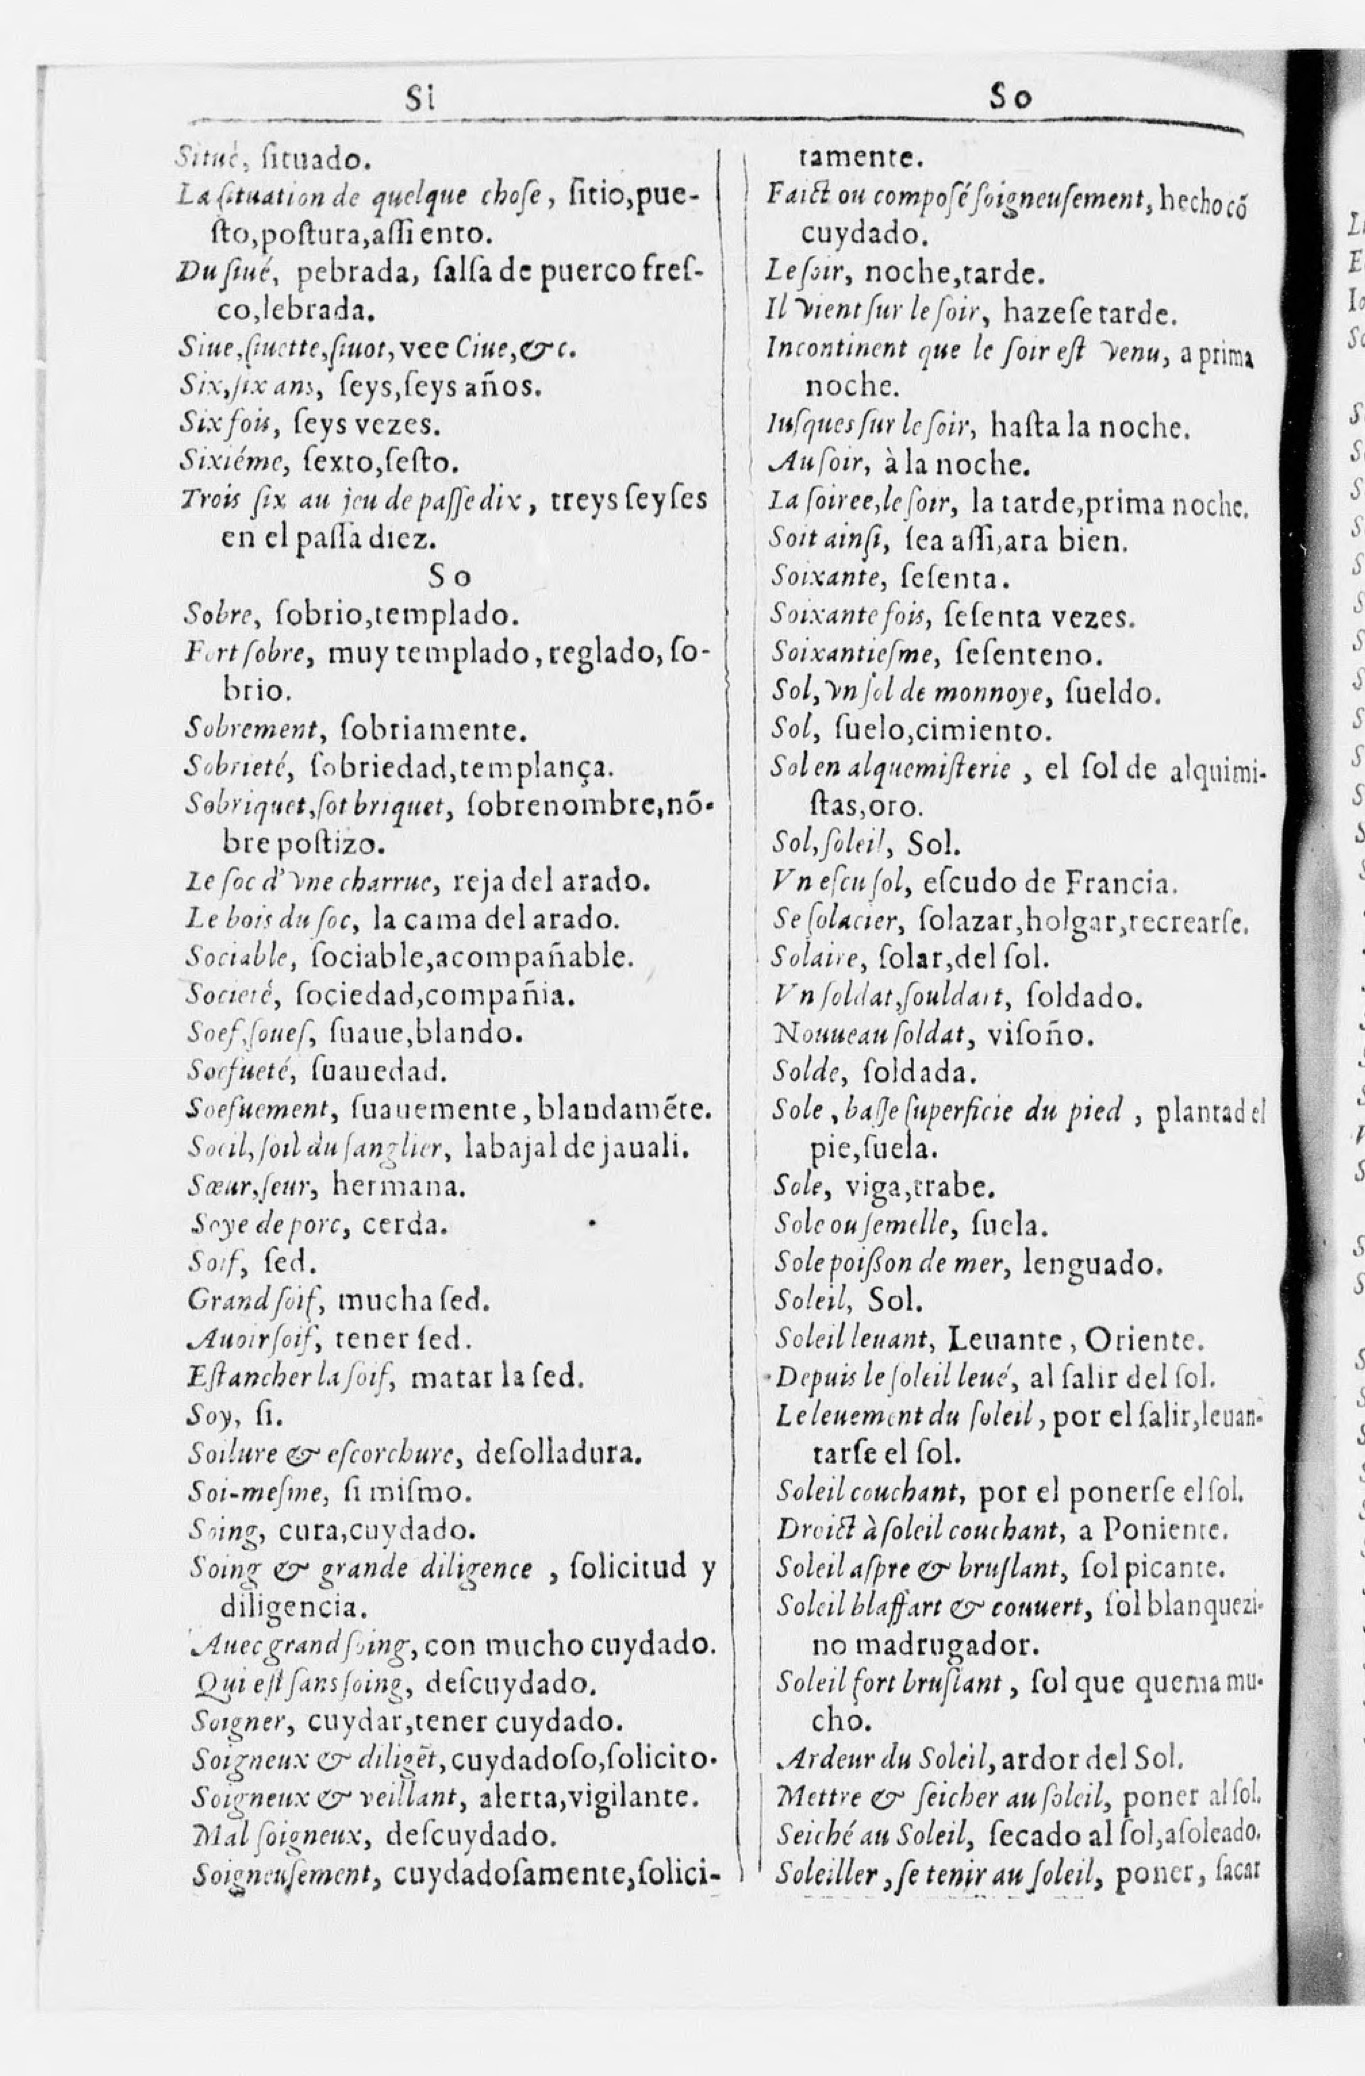 Si
Situé, ſituado.
La ſituation de quelque choſe, ſitio,pue-
ſto,poſtura,aſſiento.
Du ſiué, pebrada, ſalſa de puerco freſ-
co,lebrada.
Siue,ſiuette,ſiuot, vee Ciue,&c.
Six,ſix ans, ſeys,ſeys años.
Six fois, ſeys vezes.
Sixiéme, ſexto,ſeſto.
Trois ſix au jeu de paſſe dix, treys ſeyſes
en el paſſa diez.
So
Sobre, ſobrio,templado.
Fort ſobre, muy templado, reglado, ſo-
brio.
Sobrement, ſobriamente.
Sobrieté, ſobriedad,templança.
Sobriquet,ſot briquet, ſobrenombre,nõ-
bre poſtizo.
Le ſoc d'vne charrue, reja del arado.
Le bois du ſoc, la cama del arado.
Sociable, ſociable,acompañable.
Societé, ſociedad,compañia.
Soef,ſoueſ, ſuaue,blando.
Soefueté, ſuauedad.
Soefuement, ſuauemente, blandamẽte.
Soeil,ſoil du ſanglier, labajal de jauali.
Sœur,ſeur, hermana.
Soye de porc, cerda.
Soif, ſed.
Grand ſoif, mucha ſed.
Auoir ſoif, tener ſed.
Eſtancher la ſoif, matar la ſed.
Soy, ſi.
Soilure & eſcorchure, deſolladura.
Soi-meſme, ſi miſmo.
Soing, cura,cuydado.
Soing & grande diligence , ſolicitud y
diligencia.
Auec grand ſoing, con mucho cuydado.
Qui eſt ſans ſoing, deſcuydado.
Soigner, cuydar,tener cuydado.
Soigneux & diligẽt, cuydadoſo,ſolicito.
Soigneux & veillant, alerta,vigilante.
Mal ſoigneux, deſcuydado.
Soigneuſement, cuydadoſamente,ſolici-
So
tamente.
Faict ou compoſé ſoigneuſement, hecho cõ
cuydado.
Le ſoir, noche,tarde.
Il vient ſur le ſoir, hazeſe tarde.
Incontinent que le ſoir eſt venu, a prima
noche.
Iuſques ſur le ſoir, haſta la noche.
Au ſoir, à la noche.
La ſoiree,le ſoir, la tarde,prima noche.
Soit ainſi, ſea aſſi,ara bien.
Soixante, ſeſenta.
Soixante fois, ſeſenta vezes.
Soixantieſme, ſeſenteno.
Sol, vn ſol de monnoye, ſueldo.
Sol, ſuelo,cimiento.
Sol en alquemiſterie , el ſol de alquimi-
ſtas,oro.
Sol,ſoleil, Sol.
Vn eſcu ſol, eſcudo de Francia.
Se ſolacier, ſolazar,holgar,recrearſe.
Solaire, ſolar,del ſol.
Vn ſoldat,ſouldart, ſoldado.
Nouueau ſoldat, viſoño.
Solde, ſoldada.
Sole , baſſe ſuperficie du pied , planta del
pie,ſuela.
Sole, viga,trabe.
Sole ou ſemelle, ſuela.
Sole poiſſon de mer, lenguado.
Soleil, Sol.
Soleil leuant, Leuante , Oriente.
Depuis le ſoleil leué, al ſalir del ſol.
Le leuement du ſoleil, por el ſalir,leuan-
tarſe el ſol.
Soleil couchant, por el ponerſe el ſol.
Droict à ſoleil couchant, a Poniente.
Soleil aſpre & bruſlant, ſol picante.
Soleil blaffart & couuert, ſol blanquezi-
no madrugador.
Soleil fort bruſlant , ſol que quema mu-
cho.
Ardeur du Soleil, ardor del Sol.
Mettre & ſeicher au ſoleil, poner al ſol.
Seiché au Soleil, ſecado al ſol,aſoleado.
Soleiller , ſe tenir au ſoleil, poner, ſacar